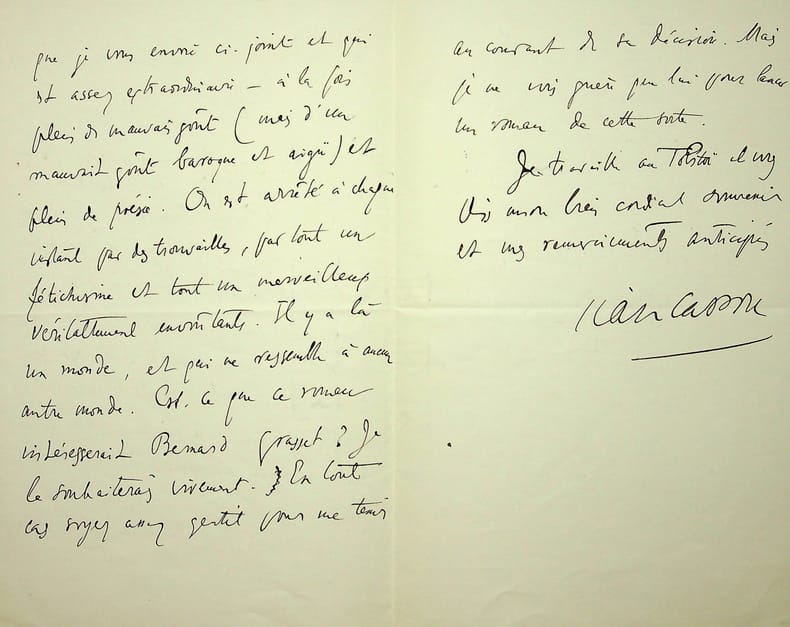 que je vous envoie ci-joint et qui
est assez extraordinaire – à la fois
plein de mauvais goût (mais d'un
mauvais goût baroque et aigu) et
plein de poésie. On est arrêté à chaque
instant par des trouvailles, par tout un
fétichisme et tout un merveilleux
véritablement envoûtants. Il y a là
un monde, et qui ne ressemble à aucun
autre monde. Est-ce que ce roman
intéresserait Bernard Grasset? Je
le souhaiterais vivement. En tout
cas soyez assez gentil pour me tenir
au courant de sa décision. Mais
je ne vois guère que lui pour lancer
un roman de cette sorte.
Je travaille au Tolstoï et
mon bien cordial souvenir
et mes remerciements anticipés
Jean Cassou